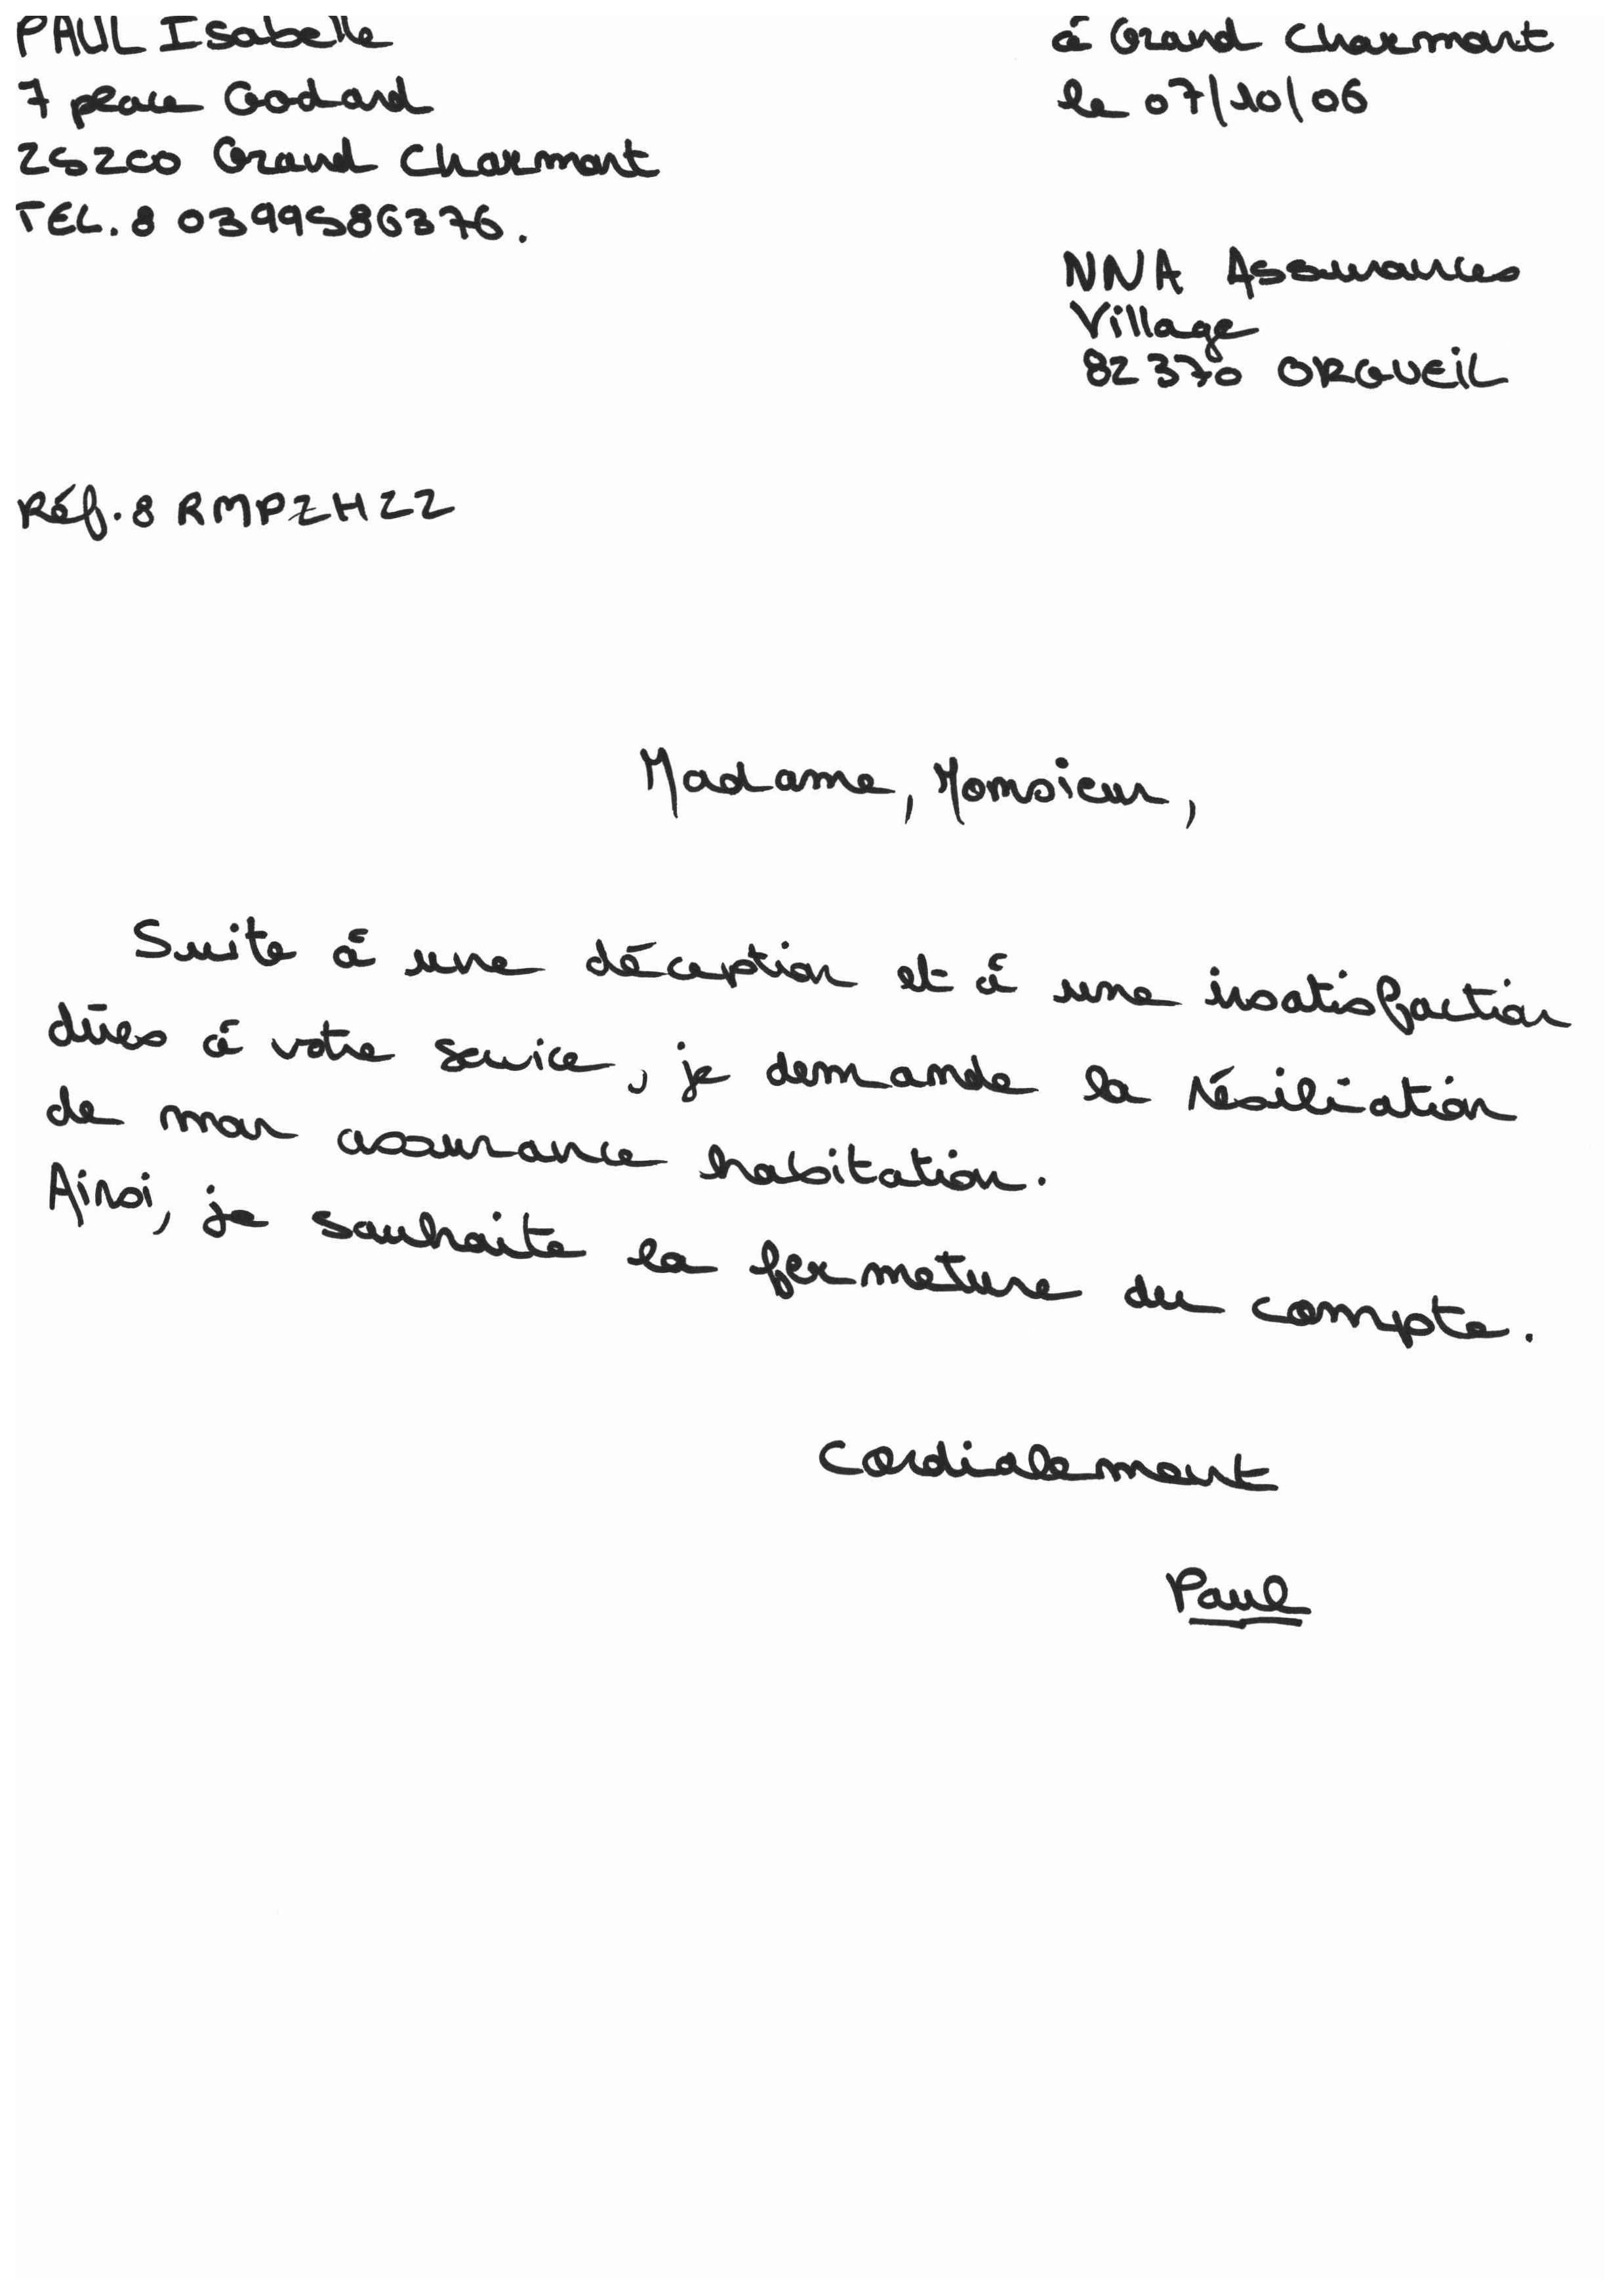 PAUL Isabelle
7 place Godard
25200 Grand Charmont
TEL. : 0399586376.
à Grand Charmont
le 07/10/06
NNA Assurances
Village
82370 ORGUEIL
Réf. : RMPZH22
Madame, Monsieur,
Suite à une déception et à une insatisfaction
dûes à votre service, je demande la résiliation
de mon assurance habitation.
Ainsi, je souhaite la fermeture du compte.
Cordialement
Paul